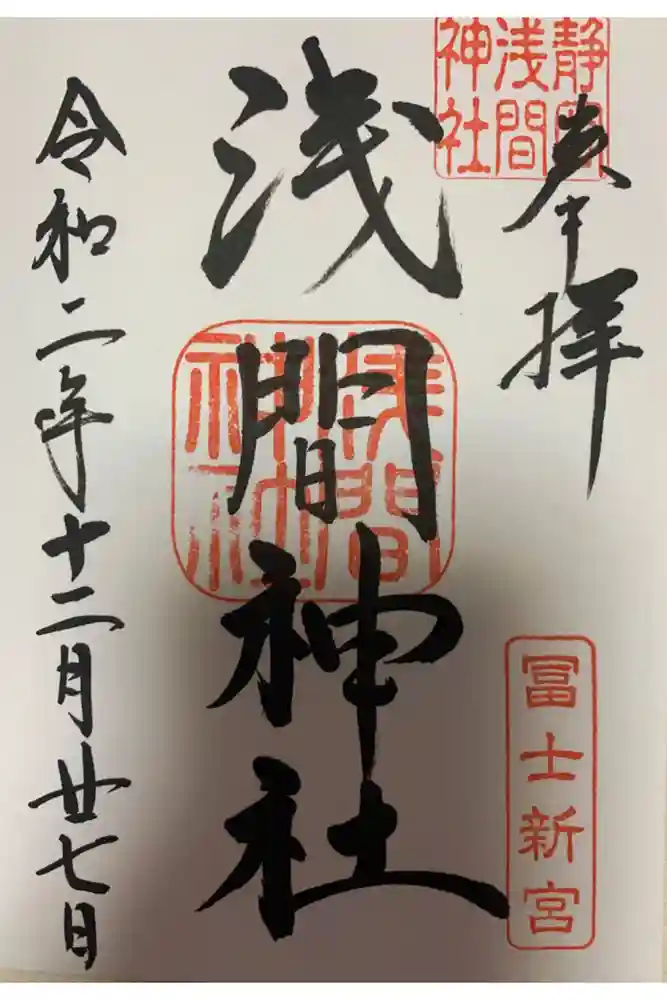 奉拝
静岡
浅間
神社
冨士新宮
浅間神社
浅間
神社
令和二年十二月廿七日